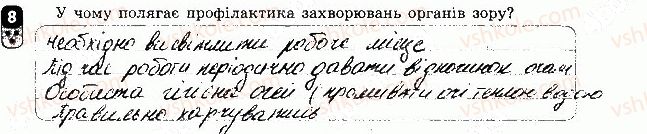 8 У чому полягає профілактика захворювань органів зору?
необхідно висвітлити робоче місце
Під час роботи періодично давати відпочинок очам
Особиста гігієна очей (промивати очі теплою водою
Правильно харчуватись